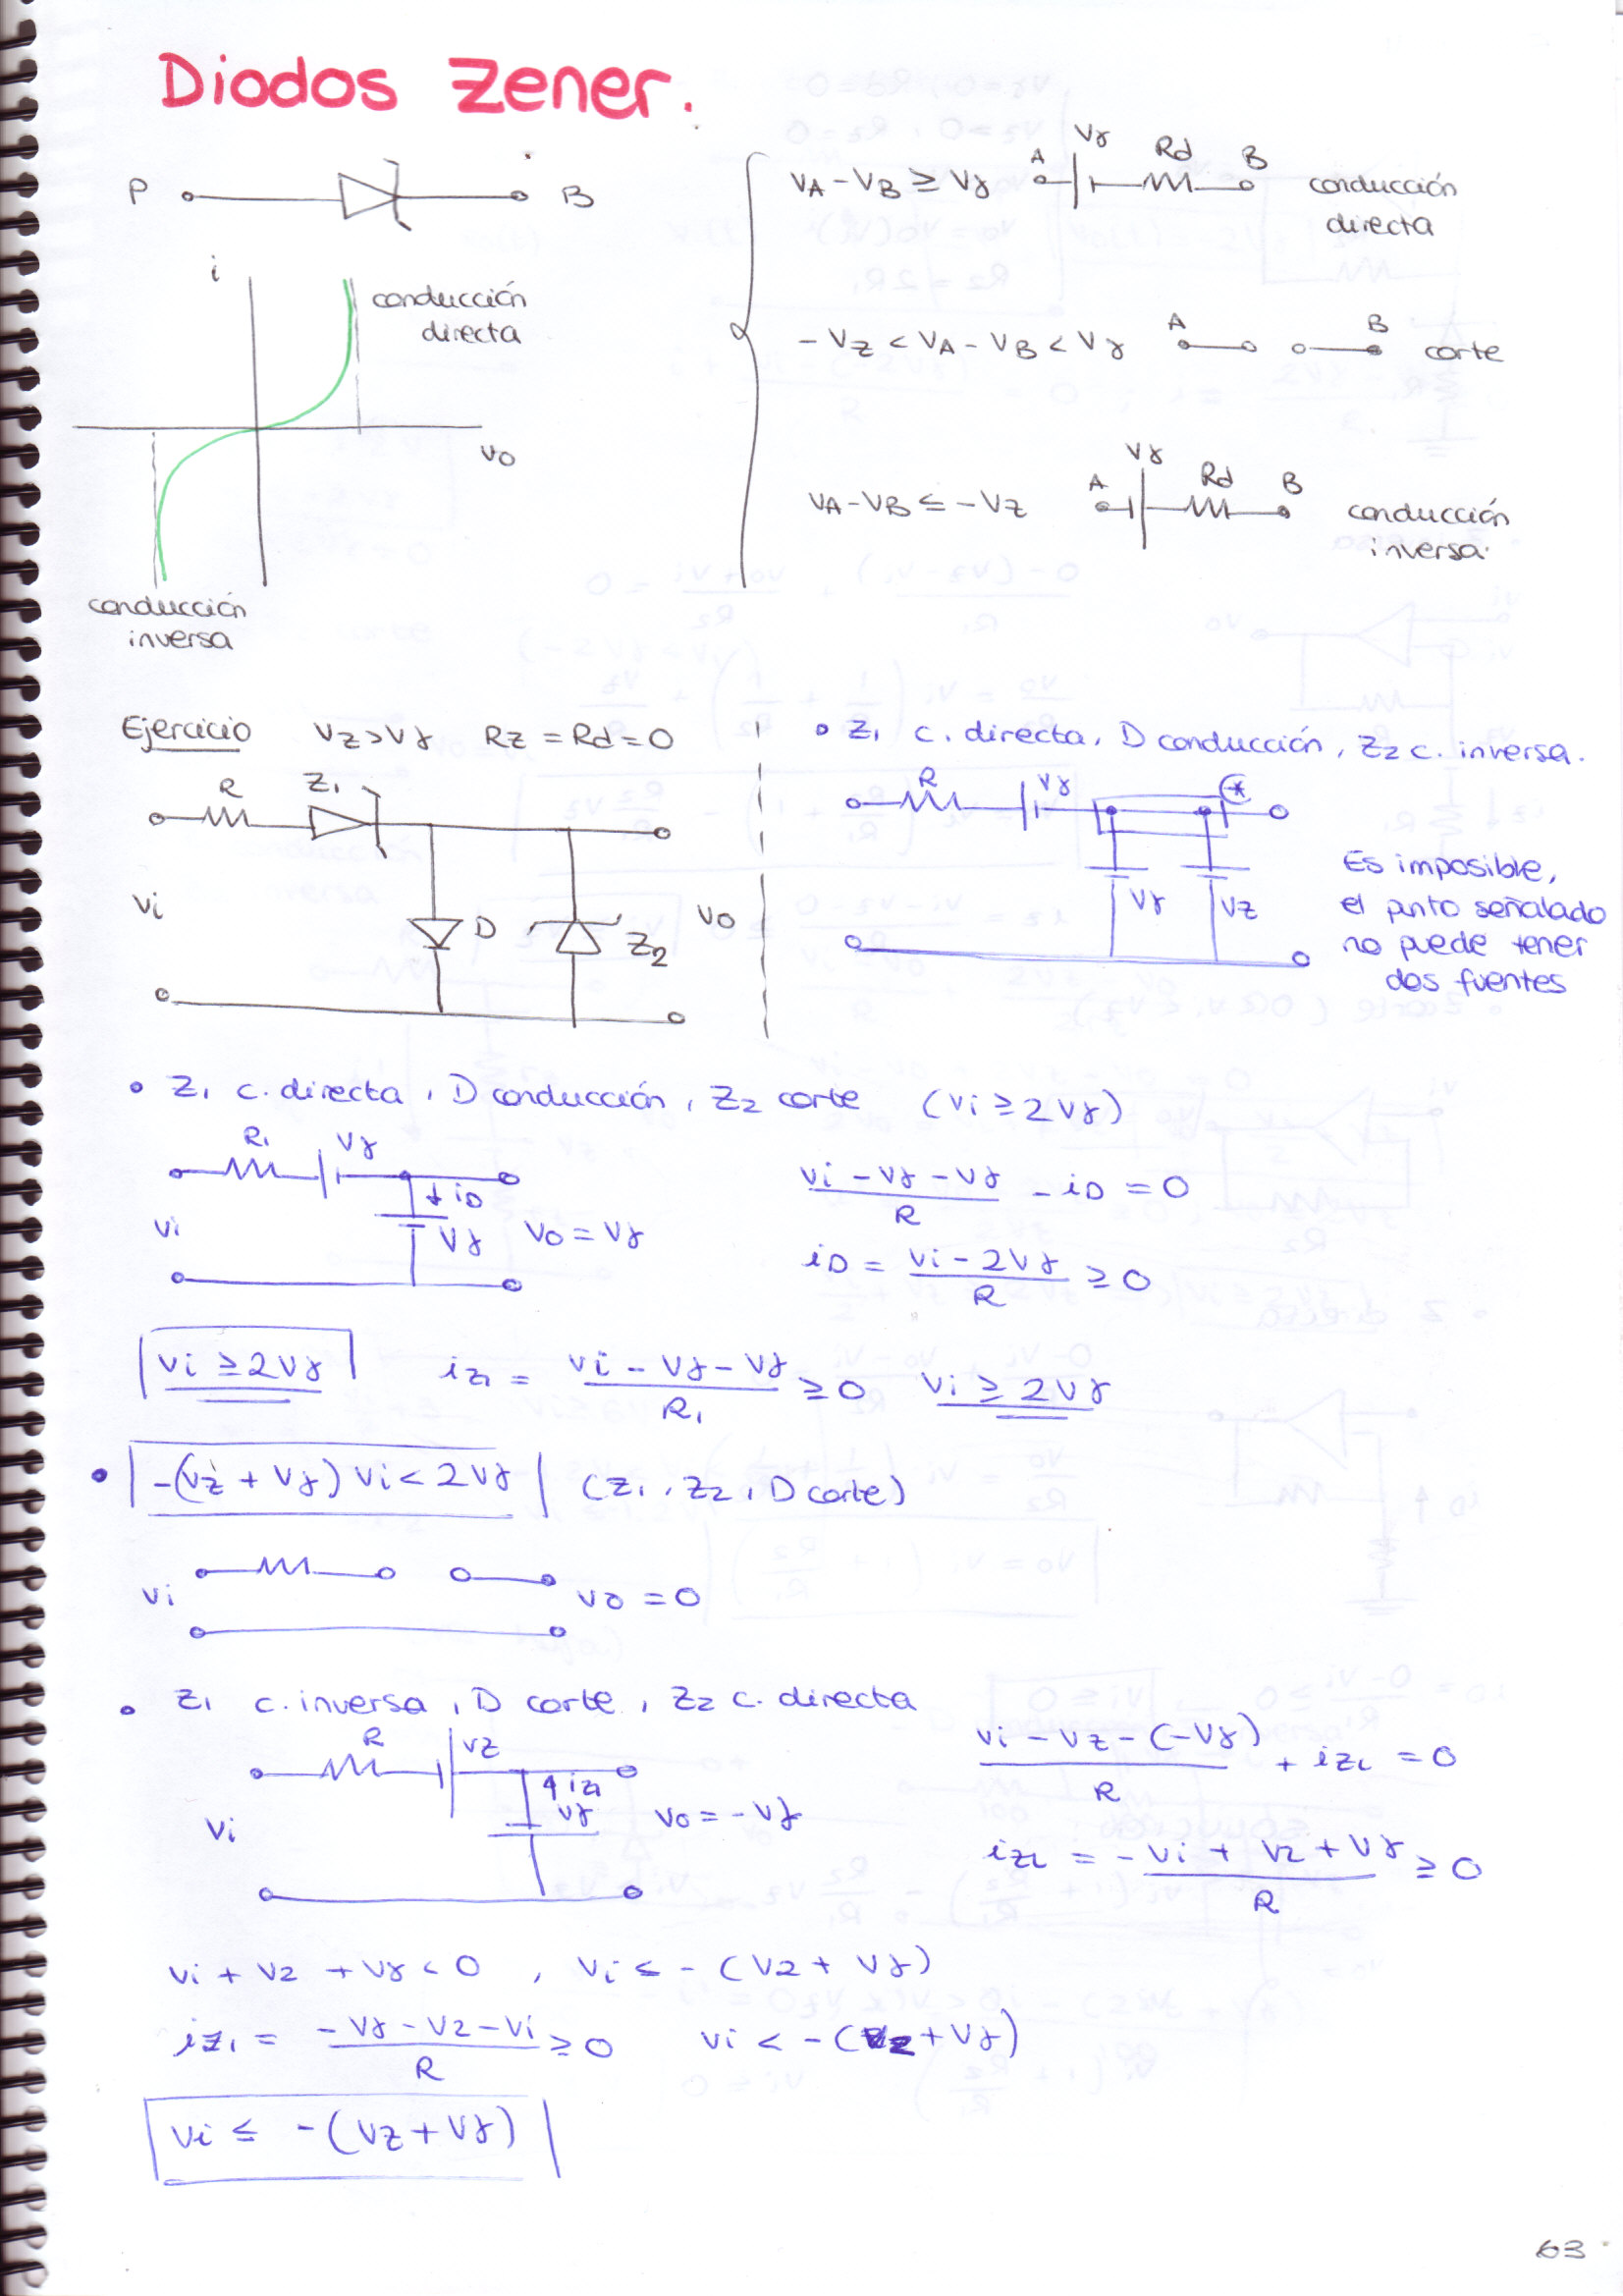 Diodos Zener.
P B
VA - VB ≥ Vγ A Vγ Rd B conducción directa
i
conducción
directa
vo
conducción
inversa
- Vz < VA - VB < Vγ A B corte
VA - VB ≤ - Vz A Vγ Rd B conducción inversa.
Ejercicio Vz > Vγ Rz = Rd = 0
R Z1
Vi D Z2 Vo
• Z1 c. directa, D conducción, Z2 c. inversa.
R Vγ *
Vγ Vz
Es imposible,
el punto señalado
no puede tener
dos fuentes
• Z1 c. directa, D conducción, Z2 corte (Vi ≥ 2Vγ)
R1 Vγ
iD
Vi Vγ Vo = Vγ
(Vi - Vγ - Vγ)/R - iD = 0
iD = (Vi - 2Vγ)/R ≥ 0
Vi ≥ 2Vγ iZ1 = (Vi - Vγ - Vγ)/R1 ≥ 0 Vi ≥ 2Vγ
• -(Vz + Vγ) Vi < 2Vγ (Z1, Z2, D corte)
Vi Vo = 0
• Z1 c. inversa, D corte, Z2 c. directa
R Vz
iZ1
Vi Vγ Vo = -Vγ
(Vi - Vz - (-Vγ))/R + iZ2 = 0
iZ2 = - (Vi + Vz + Vγ)/R ≥ 0
Vi + Vz + Vγ < 0 , Vi ≤ - (Vz + Vγ)
iZ1 = (-Vγ - Vz - Vi)/R ≥ 0 Vi < - (Vz + Vγ)
Vi ≤ - (Vz + Vγ)
63